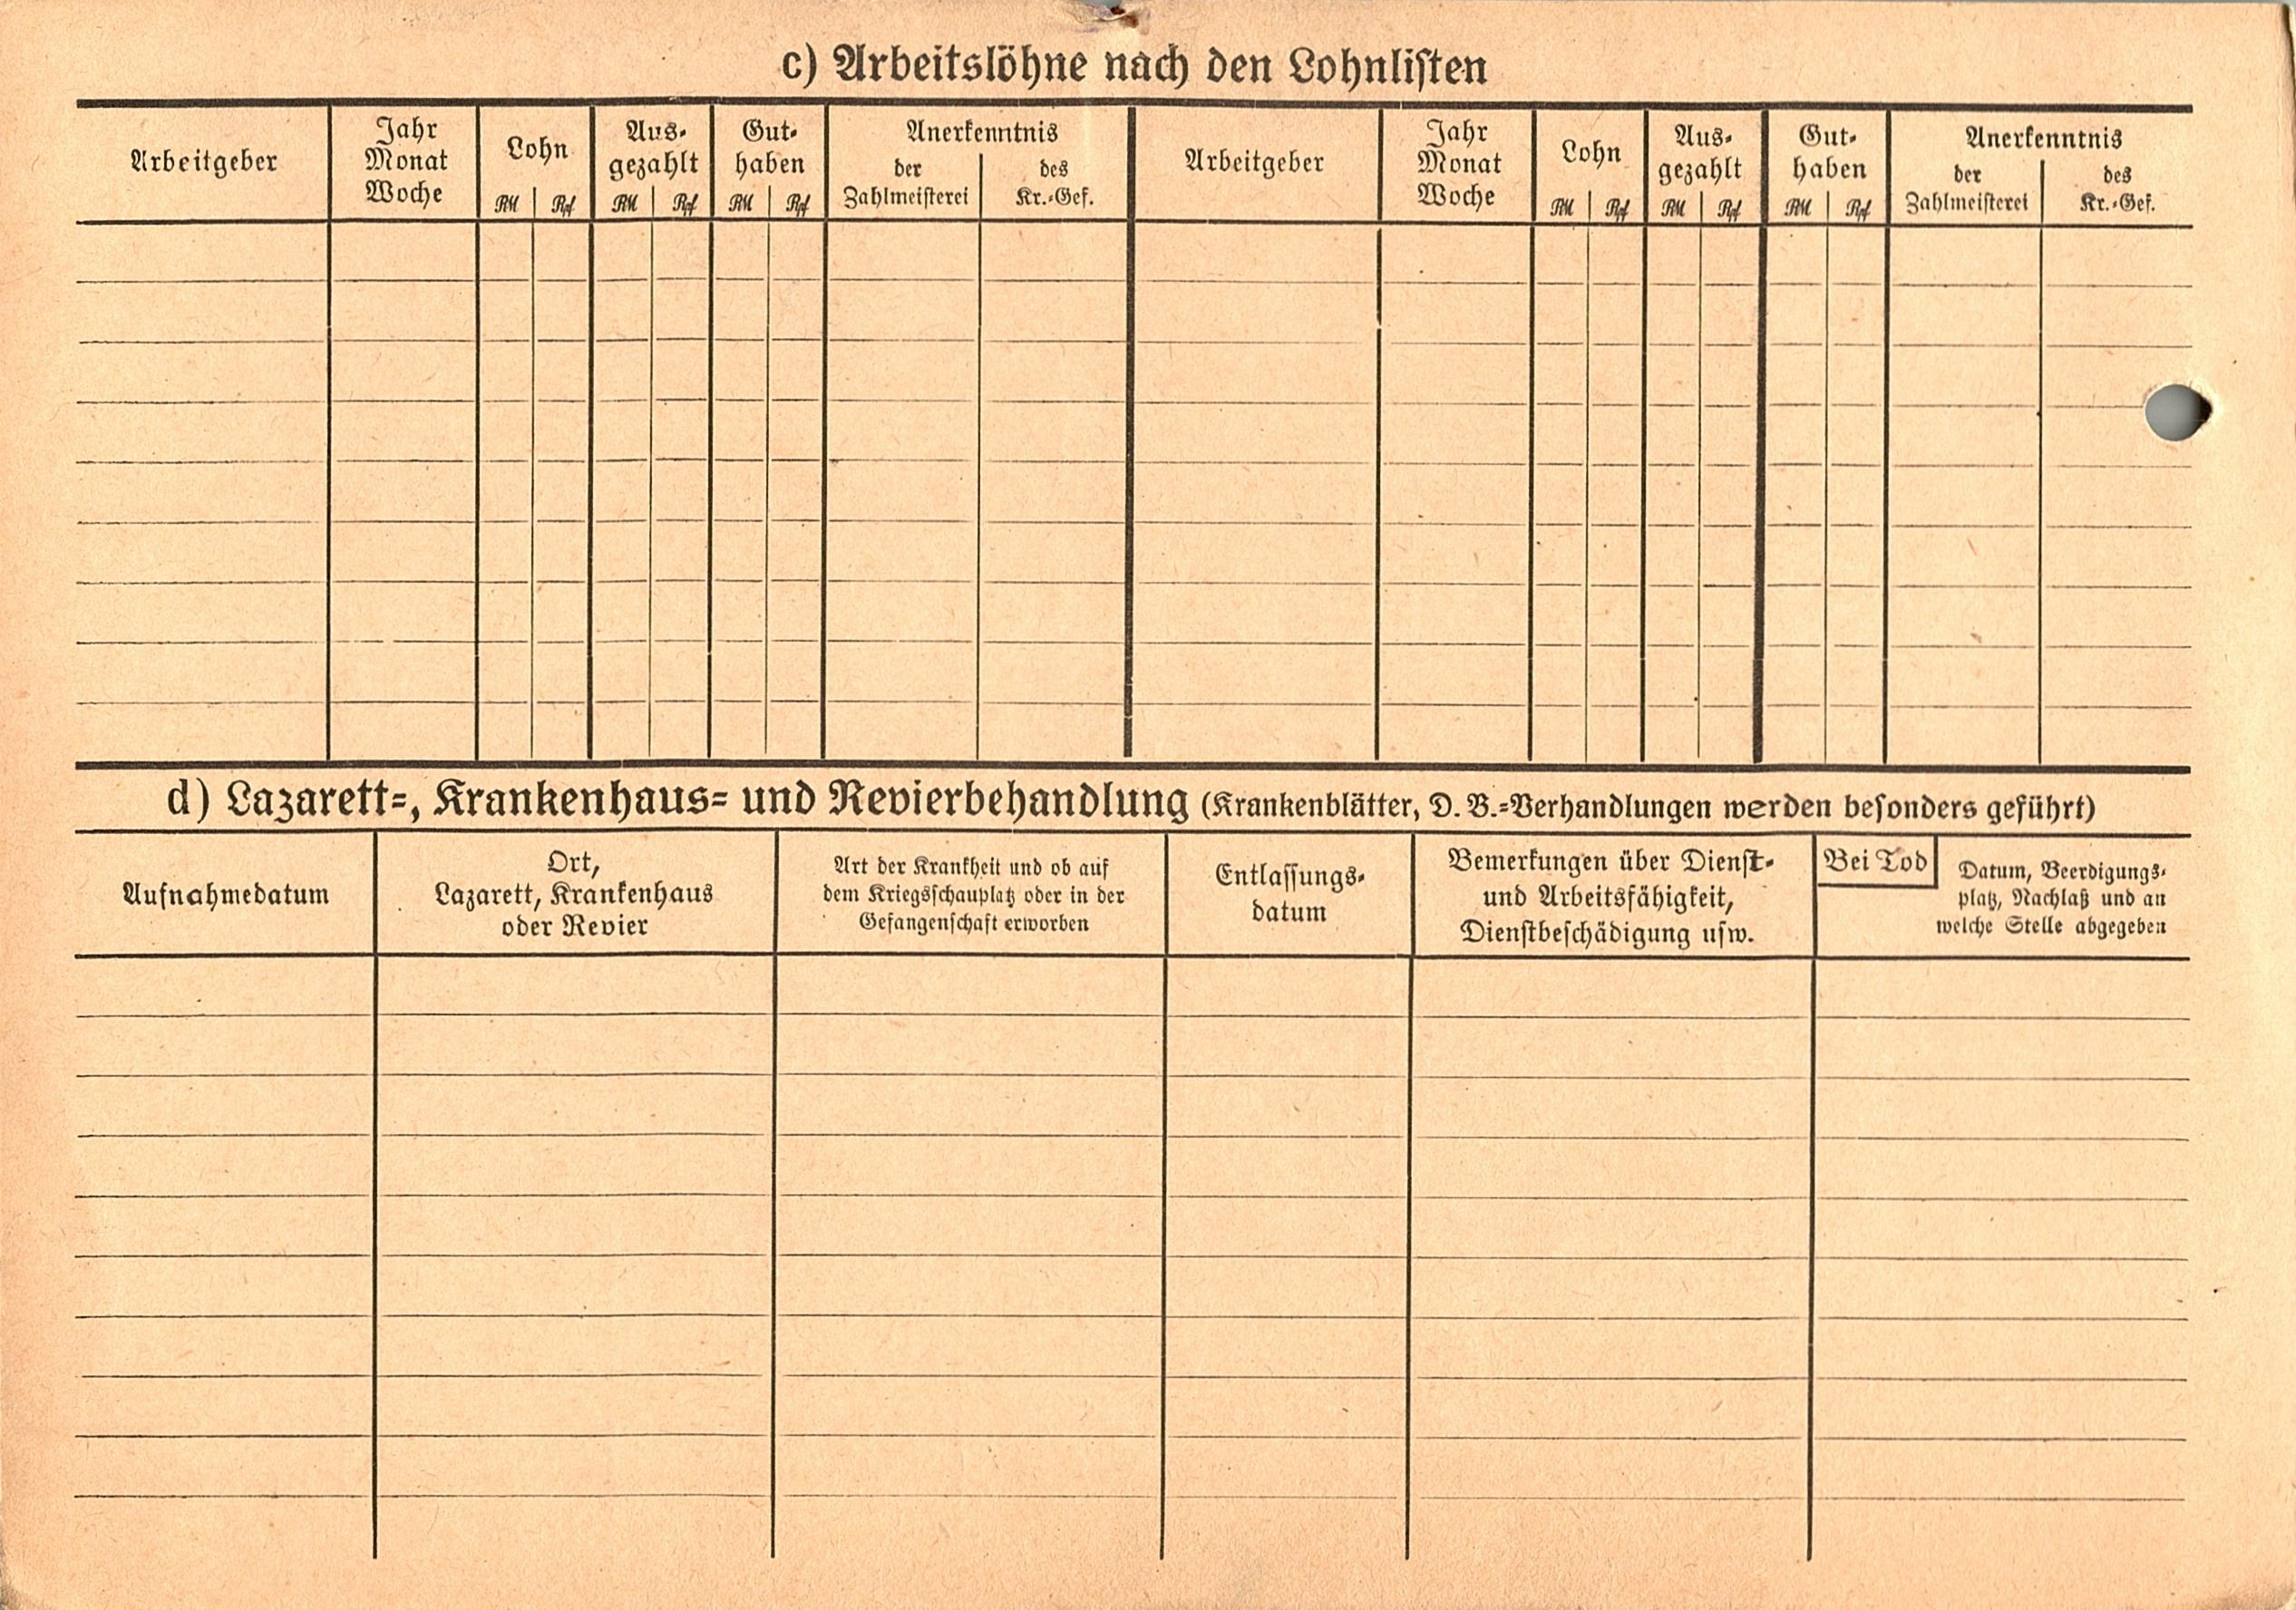 c) Arbeitslöhne nach den Lohnlisten
Arbeitgeber
Jahr
Monat
Woche
Lohn
RM Rpf
Aus-
gezahlt
RM Rpf
Gut-
haben
RM Rpf
Anerkenntnis
der
Zahlmeisterei
des
Kr.-Gef.
Arbeitgeber
Jahr
Monat
Woche
Lohn
RM Rpf
Aus-
gezahlt
RM Rpf
Gut-
haben
RM Rpf
Anerkenntnis
der
Zahlmeisterei
des
Kr.-Gef.
d) Lazarett-, Krankenhaus- und Revierbehandlung (Krankenblätter, D. B.-Verhandlungen werden besonders geführt)
Aufnahmedatum
Ort,
Lazarett, Krankenhaus
oder Revier
Art der Krankheit und ob auf
dem Kriegsschauplatz oder in der
Gefangenschaft erworben
Entlassungs-
datum
Bemerkungen über Dienst-
und Arbeitsfähigkeit,
Dienstbeschädigung usw.
Bei Tod
Datum, Beerdigungs-
platz, Nachlaß und an
welche Stelle abgegeben